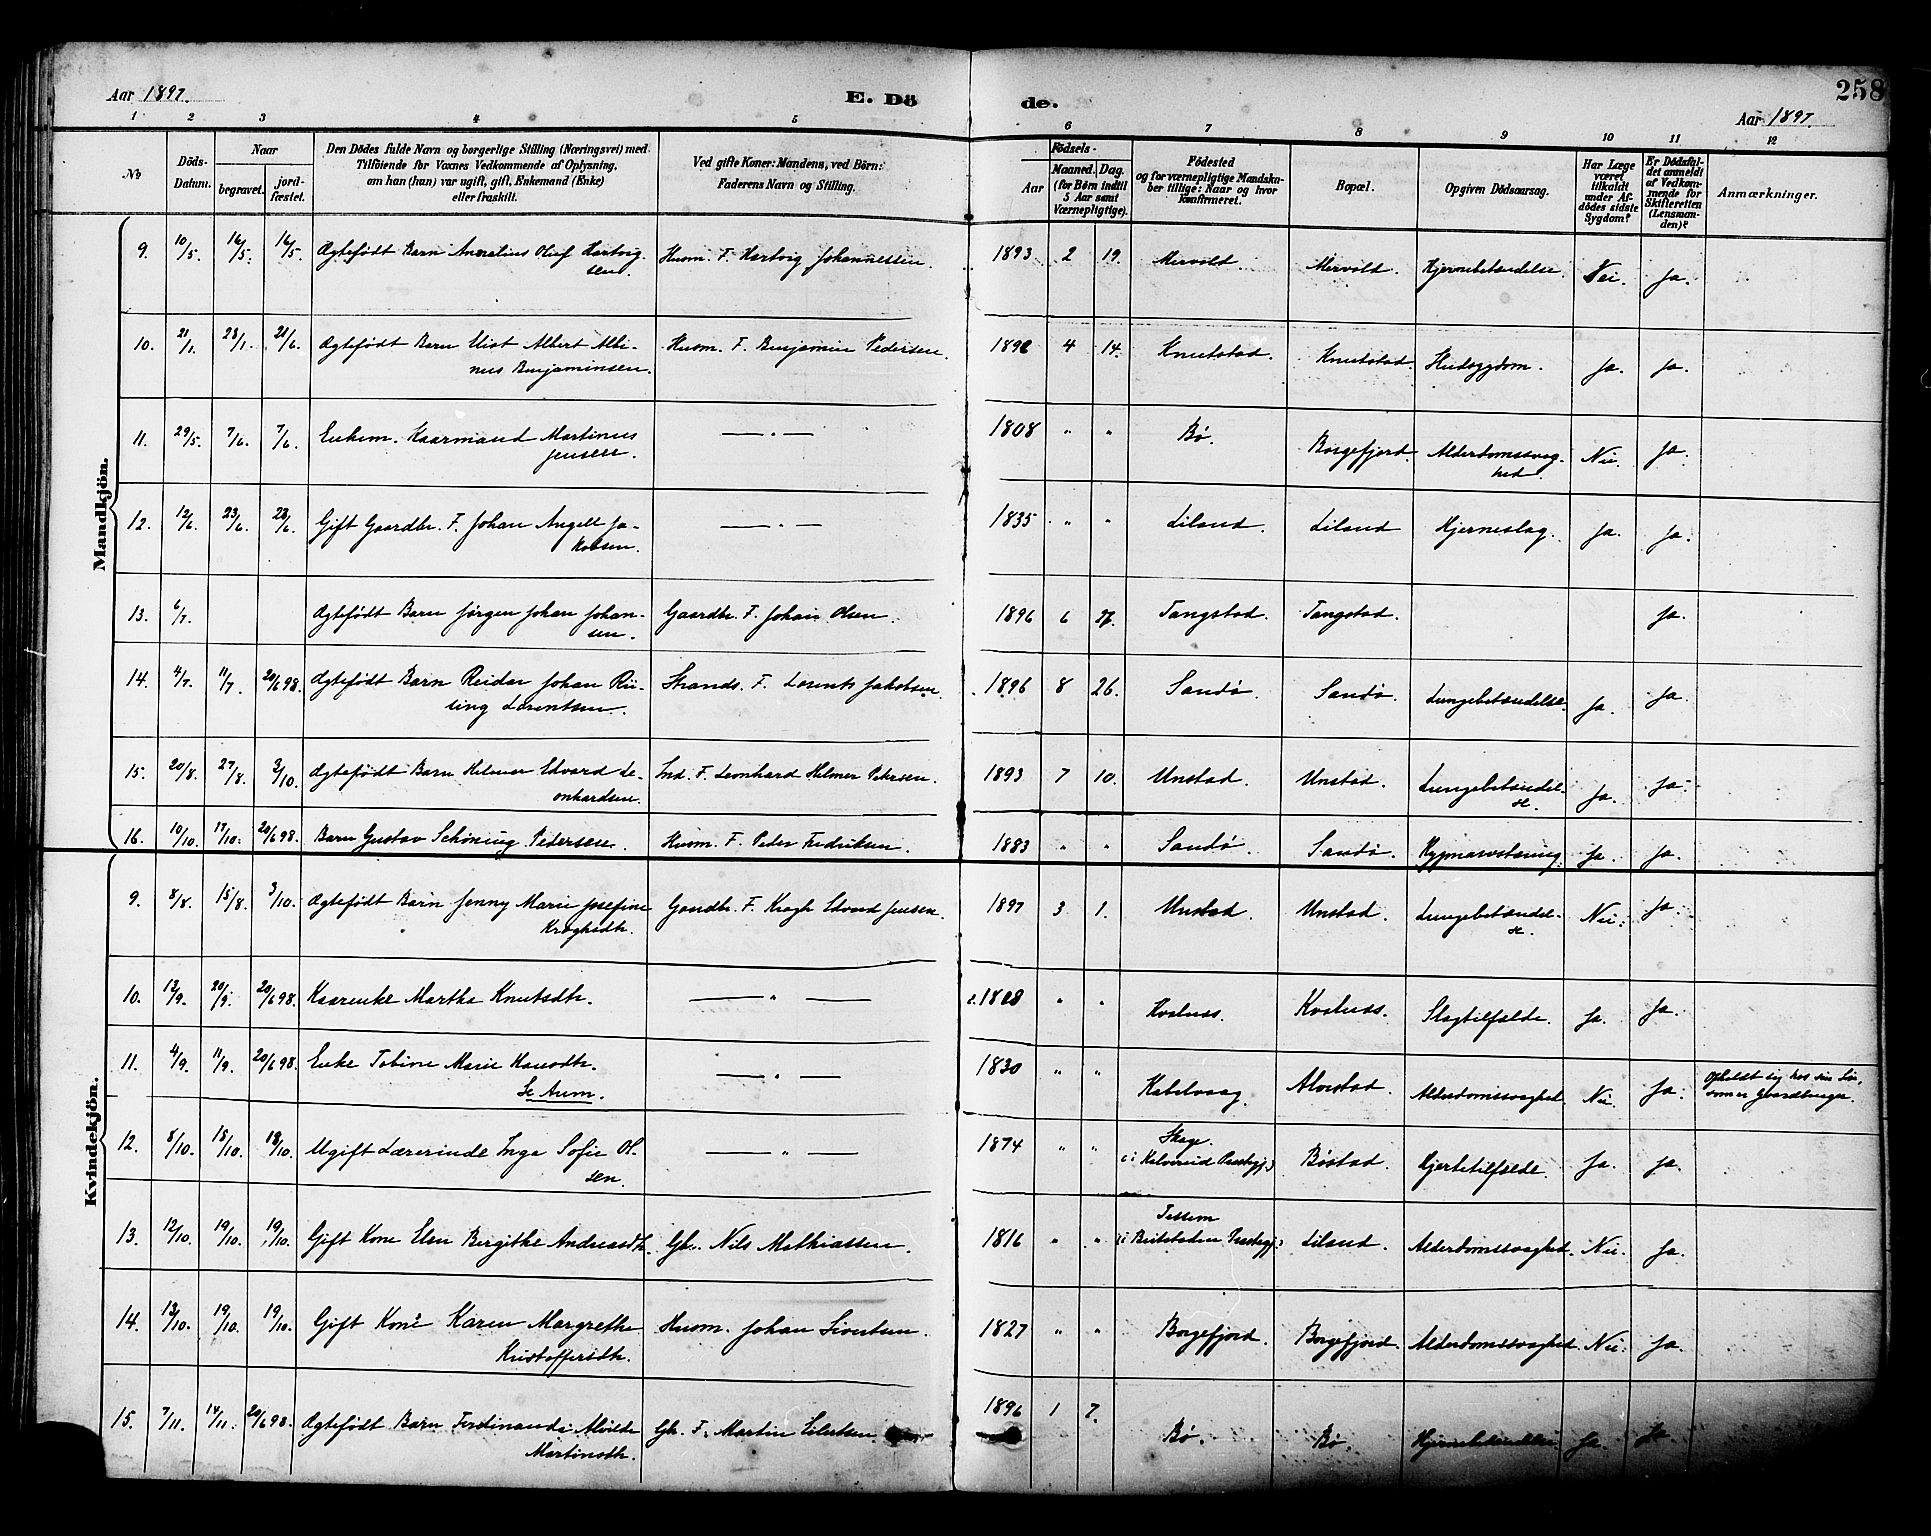 258
Aar 1897.
E. Dö
de.
Aar 1897.
1 2 3 4 5 6 7 8 9 10 11 12
No
Döds-
Datum.
Naar
begravet.
jord-
fæstet.
Den Dödes fulde Navn og borgerlige Stilling (Næringsvei) med
Tilföiende for Voxnes Vedkommende af Oplysning,
om han (hun) var ugift, gift, Enkemand (Enke)
eller fraskilt.
Ved gifte Koner: Mandens, ved Börn:
Faderens Navn og Stilling.
Födsels-
Aar
Maaned.
Dag.
(for Börn indtil
5 Aar samt
Værnepligtige).
Födested
og for værnepligtige Mandska-
ber tillige: Naar og hvor
konfirmeret.
Bopæl.
Opgiven Dödsaarsag.
Har Læge
været
tilkaldt
under Af-
dödes sidste
Sygdom?
Er Dödsfal-
det anmeldt
af Vedkom-
mende for
Skifteretten
(Lensman-
den)?
Anmærkninger.
Mandkjön.
9. 10/5. 16/5. 16/5. Ægtefødt Barn Oluf Hartvig-
sen Husm. F. Hartvig Johannessen. 1893 2 19. Mervold. Mervold. Hjernebetændelse. Nei. Ja.
10. 21/1. 28/1. 21/6. Ægtefødt Barn Albert Albi-
nus Benjaminsen. Husm. F. Benjamin Pedersen. 4 14. Knutstad. Knutstad. Hudsygdom. Ja. Ja.
11. 29/5. 7/6. 7/6. Enkem. Kaarmand Martinus
Jensen. — " — 1808 " " Bø. Borgefjord. Alderdomssvag-
hed. Nei. Ja.
12. 12/6. 23/6. 23/6. Gift Gaardbr. F. Johan Angell Ja-
kobsen. — " — 1835 " " Liland. Liland Hjerneslag. Ja. Ja.
13. 6/7. Ægtefødt Barn Jørgen Johan Johan-
sen. Gaardbr. F. Johan Olsen. 1896 6 Tangstad. Tangstad. Ja.
14. 4/7. 11/7. 20/6 98. Ægtefødt Barn Reidar Johan Rii-
sing Lorentsen. Strands. F. Lorents Jakobsen. 1896 8 26. Sandø. Sandø. Lungebetændelse. Ja. Ja.
15. 20/8. 27/8. 3/10. Ægtefødt Barn Helmer Edvard Le-
onhardsen. Ind. F. Leonhard Helmer Petersen. 1893 7 10. Unstad. Unstad. Lungebetændel-
se. Ja. Ja.
16. 10/10. 17/10. 20/6 98. Barn Gustav Schøning Pedersen. Husm. F. Peder Fredriksen. 1883 " " Sandø. Sandø. Ja. Ja.
Kvindekjön.
9. 8/8. 15/8. 3/10. Ægtefødt Barn Jenny Marie Josefine
Kroghsdtr. Gaardbr. F. Krogh Edvard Jensen. 1897 3 1. Unstad. Unstad. Lungebetændel-
se. Nei. Ja.
10. 13/9. 20/9. 20/6 98. Kaarenke Martha Knutsdtr. — " — " " Kvalnæs. Kvalnæs. Slagtilfælde. Ja. Ja.
11. 4/9. 11/9. 20/6 98. Enke Tobine Marie Hansdtr.
Se Anm. — " — 1830 " " Kabelvaag. Alvestad. Alderdomssvaghed. Nei. Ja. Opholdt sig hos sin Søn,
som er Gaardbruger.
12. 8/10. 18/10. 18/10. Ugift Lærerinde Inga Sofie Ol-
sen. — " — 1874 " " Skage.
(i Kolvereid Præstegj.) Bøstad. Hjertetilfælde. Ja. Ja.
13. 12/10. 19/10. 19/10. Gift Kone Elen Birgithe Andreasdtr. Gbr. Nils Mathiassen. 1816 " " Tessem
(i Beitstaden Præstegj.) Liland. Alderdomssvaghed. Nei. Ja.
14. 13/10. 19/10. 19/10. Gift Kone Karen Margrethe
Kristoffersdtr. Husm. Johan Sivertsen. 1827 " " Borgefjord. Borgefjord. Alderdomssvaghed. Nei. Ja.
15. 7/11. 14/11. 20/6 98. Ægtefødt Barn Ferdinande Alvilde
Martinsdtr. Gbr. F. Martin Eilertsen. 1896 1 7. Bø. Bø. Hjernebetændelse. Ja. Ja.